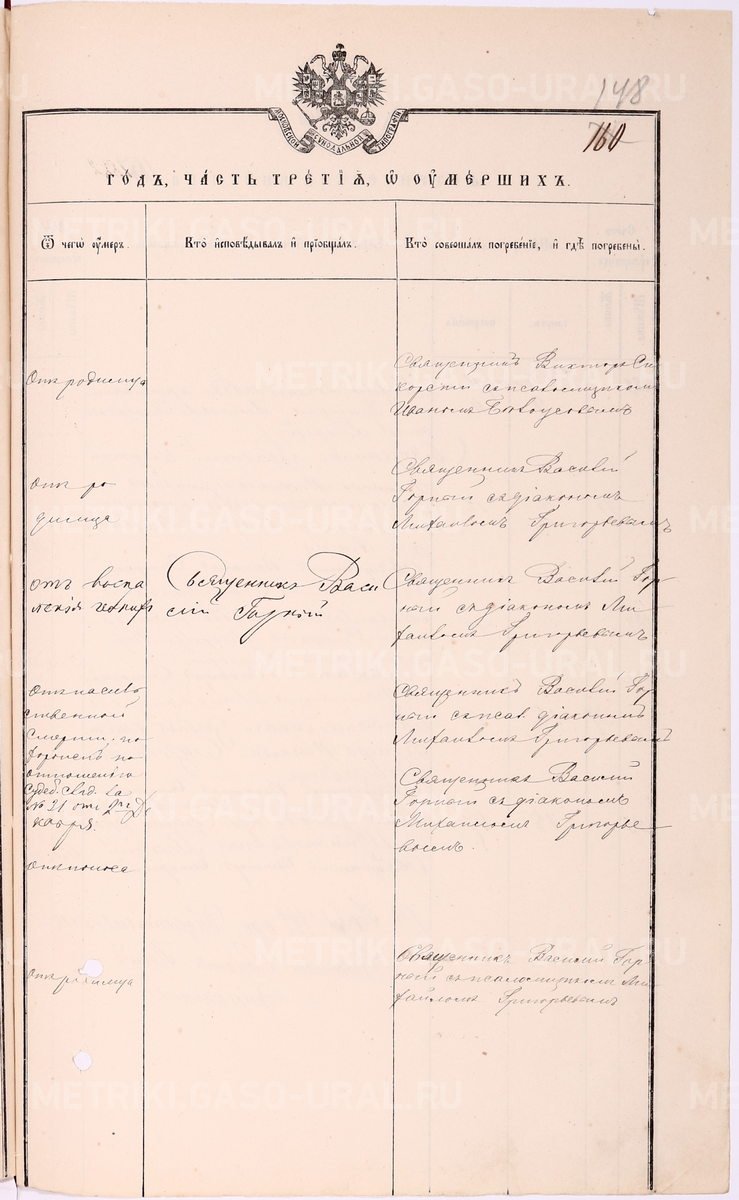 148
160
МОСКОВСКОЙ СѴНОДАЛЬНОЙ ТИПОГРАФІИ
ГОДЪ, ЧАСТЬ ТРЕТІѦ, Ѡ ОУМЕРШИХЪ.
Ѿ чегѡ оумеръ.
Кто исповѣдывалъ и пріобщалъ.
Кто совершалъ погребеніе, и гдѣ погребены.
Отъ родимца
Священникъ Викторъ Си
корскій съ псаломщикомъ
Иваномъ
отъ ро
димца
Священникъ Василій
Горной съ діакономъ
Михаиломъ Григорьевымъ
отъ воспа
ленія
Священникъ Васи
лій Горной
Священникъ Василій Гор
ной съ діакономъ Ми
хаиломъ Григорьевымъ
отъ насиль
ственной
смерти, по
по
отношенію
№ 21 отъ
Священникъ Василій Гор
ной съ діакономъ
Михаиломъ Григорьевымъ
отъ поноса
Священникъ Василій
Горной съ діакономъ
Михаиломъ Григорье
вымъ.
Отъ родимца
Священникъ Василій Гор
ной съ псаломщикомъ Ми
хаиломъ Григорьевымъ
METRIKI.GASO-URAL.RU